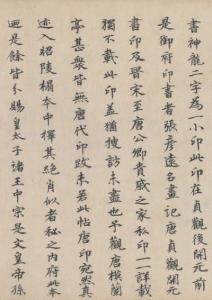 書神龍二字為一小印此印在貞觀後開元前
是御府印書者張彥遠名畫記唐貞觀開元
書印及晉宋至唐公卿貴戚之家私印一一詳載
獨不載此印蓋猶搜訪未盡也予觀唐模蘭
亭甚眾皆無唐代印跋未若此帖唐印宛然真
迹入昭陵搨本中擇其絕肖似者秘之內府此本
迺是餘皆分賜皇太子諸王中宗是文皇帝孫